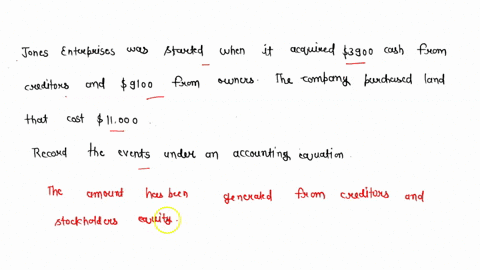 Jones Enterprises was started when it acquired $3900 cash from
creditors and $9100 from owners. The company purchased land
that cost $11.000.
Record the events under an accounting equation.
The amount has been generated from creditors and
stockholders equity.